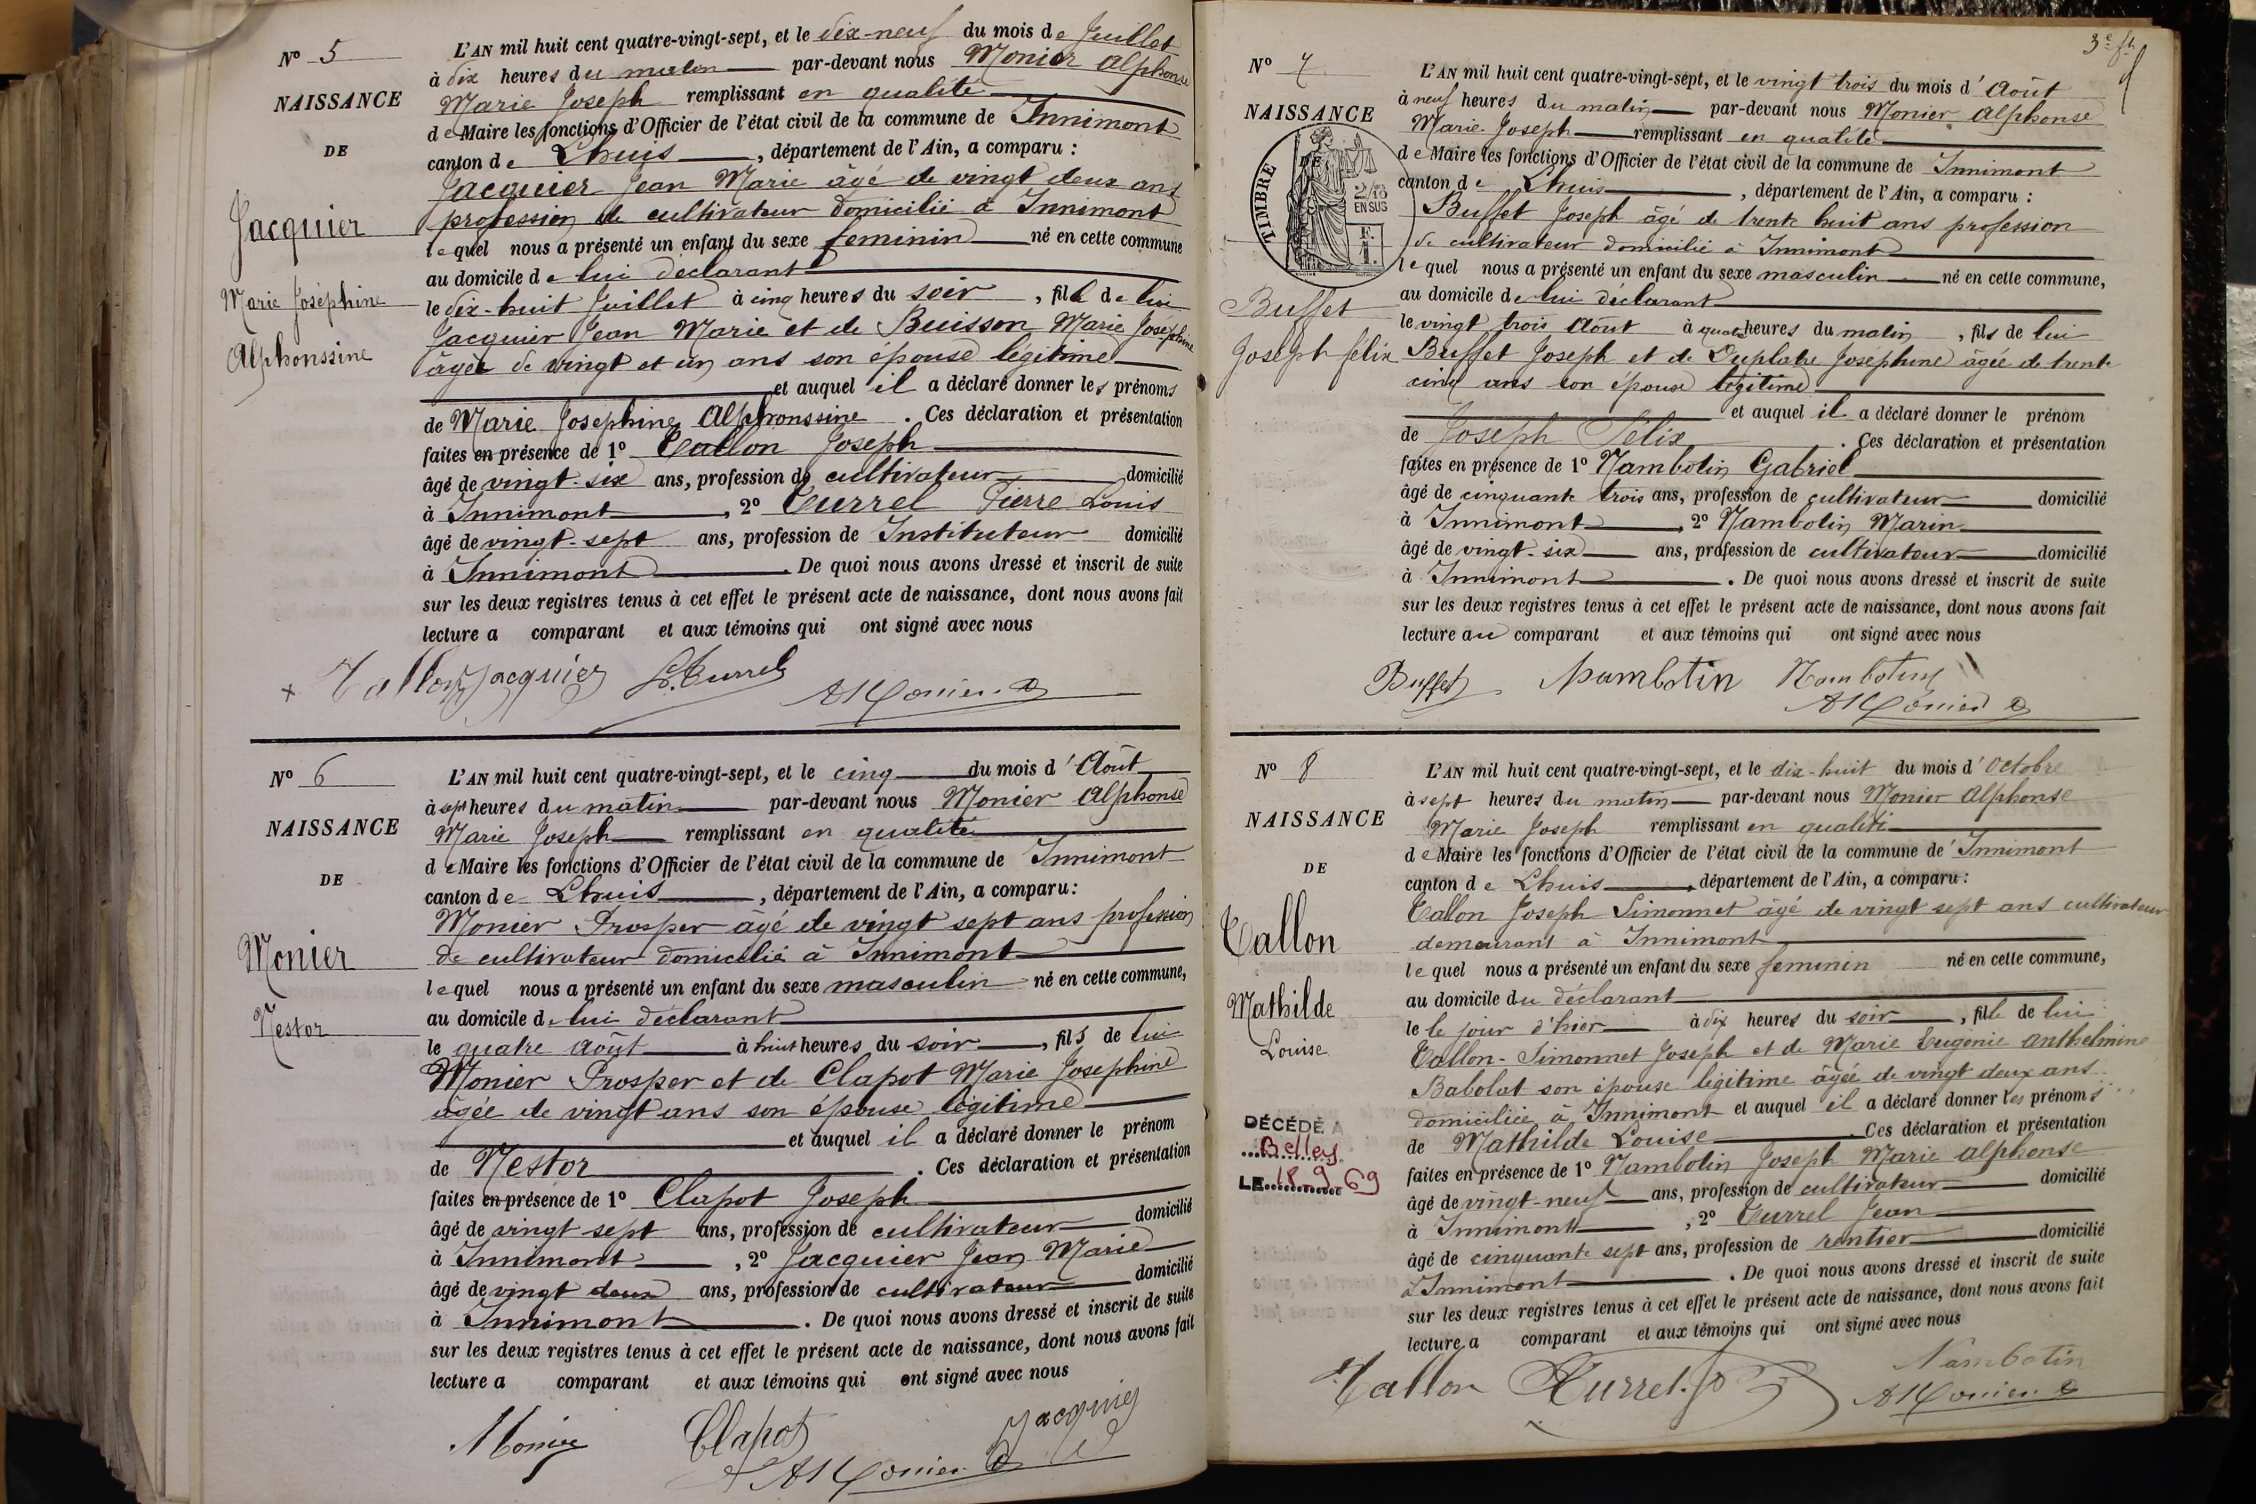 N° 5
NAISSANCE
DE
Jacquier
Marie Joséphine
Alphonssine
L'AN mil huit cent quatre-vingt-sept, et le dix-neuf du mois de Juillet
à dix heures du matin par-devant nous Monier Alphonse
Marie Joseph remplissant en qualité
de Maire les fonctions d'Officier de l'état civil de la commune de Innimont
canton de Lhuis, département de l'Ain, a comparu :
Jacquier Jean Marie âgé de vingt deux ans
profession de cultivateur domicilié à Innimont
lequel nous a présenté un enfant du sexe feminin né en cette commune
au domicile de lui déclarant
le dix-huit Juillet à cinq heures du soir, fille de lui
Jacquier Jean Marie et de Buisson Marie Joséphine
âgée de vingt et un ans son épouse légitime
et auquel il a déclaré donner les prénoms
de Marie Josephine Alphonssine. Ces déclaration et présentation
faites en présence de 1° Tallon Joseph
âgé de vingt-six ans, profession de cultivateur domicilié
à Innimont, 2° Turrel Pierre Louis
âgé de vingt-sept ans, profession de Instituteur domicilié
à Innimont. De quoi nous avons dressé et inscrit de suite
sur les deux registres tenus à cet effet le présent acte de naissance, dont nous avons fait
lecture a comparant et aux témoins qui ont signé avec nous
x Tallon Jacquier L. Turrel
A Monier
N° 6
NAISSANCE
DE
Monier
Nestor
L'AN mil huit cent quatre-vingt-sept, et le cinq du mois d'Août
à sept heures du matin par-devant nous Monier Alphonse
Marie Joseph remplissant en qualité
de Maire les fonctions d'Officier de l'état civil de la commune de Innimont
canton de Lhuis, département de l'Ain, a comparu :
Monier Prosper âgé de vingt sept ans profession
de cultivateur domicilié à Innimont
lequel nous a présenté un enfant du sexe masculin né en cette commune,
au domicile de lui déclarant
le quatre Août à huit heures du soir, fils de lui
Monier Prosper et de Clapot Marie Josephine
âgée de vingt ans son épouse légitime
et auquel il a déclaré donner le prénom
de Nestor. Ces déclaration et présentation
faites en présence de 1° Clapot Joseph
âgé de vingt sept ans, profession de cultivateur domicilié
à Innimont, 2° Jacquier Jean Marie
âgé de vingt deux ans, profession de cultivateur domicilié
à Innimont. De quoi nous avons dressé et inscrit de suite
sur les deux registres tenus à cet effet le présent acte de naissance, dont nous avons fait
lecture a comparant et aux témoins qui ont signé avec nous
Monier Clapot Jacquier
A Monier
3e ft
N° 7
NAISSANCE
DE
TIMBRE
2/10
EN SUS
Buffet
Joseph félix
L'AN mil huit cent quatre-vingt-sept, et le vingt trois du mois d'Août
à neuf heures du matin par-devant nous Monier Alphonse
Marie Joseph remplissant en qualité
de Maire les fonctions d'Officier de l'état civil de la commune de Innimont
canton de Lhuis, département de l'Ain, a comparu :
Buffet Joseph âgé de trente huit ans profession
de cultivateur domicilié à Innimont
lequel nous a présenté un enfant du sexe masculin né en cette commune,
au domicile de lui déclarant
le vingt trois Août à quatre heures du matin, fils de lui
Buffet Joseph et de Duplatre Josephine âgée de trente
cinq ans son épouse légitime
et auquel il a déclaré donner le prénom
de Joseph Félix. Ces déclaration et présentation
faites en présence de 1° Nambotin Gabriel
âgé de cinquante trois ans, profession de cultivateur domicilié
à Innimont, 2° Nambotin Marin
âgé de vingt-six ans, profession de cultivateur domicilié
à Innimont. De quoi nous avons dressé et inscrit de suite
sur les deux registres tenus à cet effet le présent acte de naissance, dont nous avons fait
lecture au comparant et aux témoins qui ont signé avec nous
Buffet Nambotin Nambotin
A Monier
N° 8
NAISSANCE
DE
Tallon
Mathilde
Louise
DÉCÉDÉ A
Belley
LE 18-9-69
L'AN mil huit cent quatre-vingt-sept, et le dix-huit du mois d'octobre
à sept heures du matin par-devant nous Monier Alphonse
Marie Joseph remplissant en qualité
de Maire les fonctions d'Officier de l'état civil de la commune de Innimont
canton de Lhuis, département de l'Ain, a comparu :
Tallon Joseph Simonnet âgé de vingt sept ans cultivateur
demeurant à Innimont
lequel nous a présenté un enfant du sexe feminin né en cette commune,
au domicile du déclarant
le le jour d'hier à dix heures du soir, fille de lui
Tallon-Simonnet Joseph et de Marie Eugénie Anthelmine
Babolat son épouse légitime âgée de vingt deux ans
domiciliée à Innimont et auquel il a déclaré donner les prénoms
de Mathilde Louise Ces déclaration et présentation
faites en présence de 1° Nambotin Joseph Marie Alphonse
âgé de vingt-neuf ans, profession de cultivateur domicilié
à Innimont, 2° Turrel Jean
âgé de cinquante sept ans, profession de rentier domicilié
à Innimont. De quoi nous avons dressé et inscrit de suite
sur les deux registres tenus à cet effet le présent acte de naissance, dont nous avons fait
lecture a comparant et aux témoins qui ont signé avec nous
Tallon Turrel Nambotin
A Monier